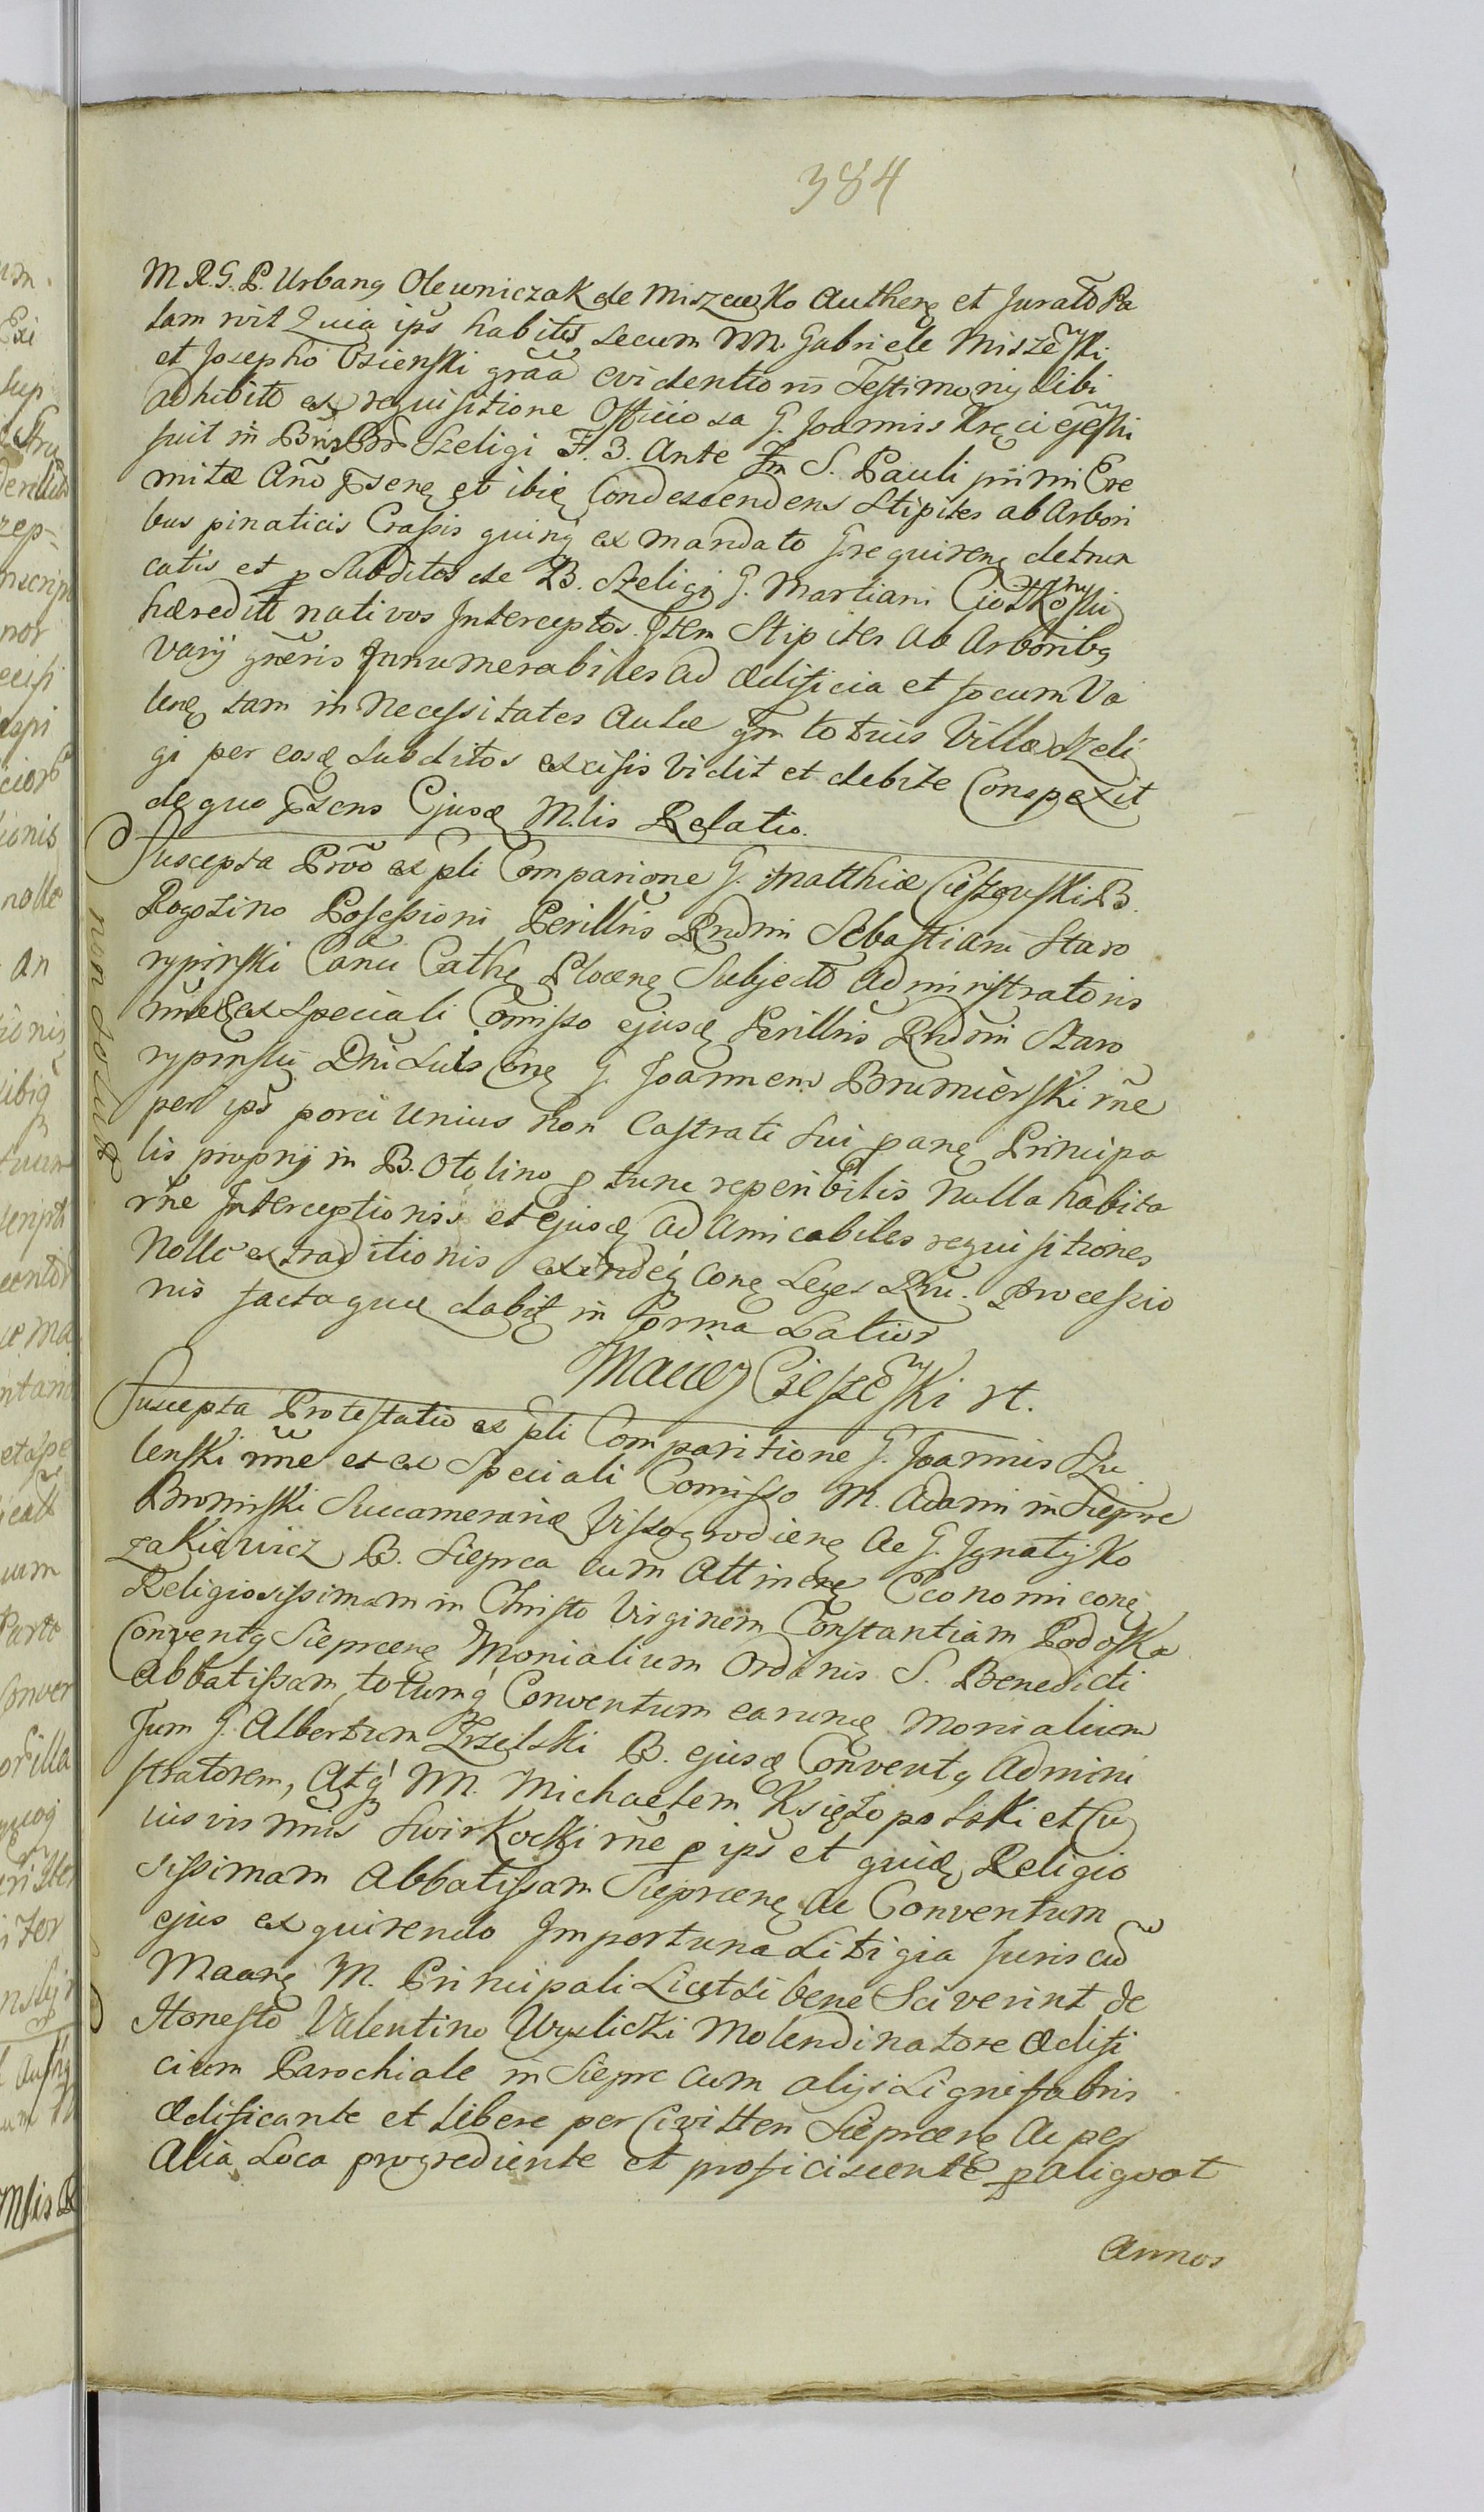 384
M. R. G. P. Urbanꝯ Olewniczak de Miszewko Authenꝫ et Juratō Pa
lam rvit Quia ips habites secum NN. Gabriele Miszewski
et Josepho Osienski grāā evidentioris Testimonij sibi
adhibito ex requisitione Officiosa G. Joannis Kręciejewski
fuit in Bnis Szeligi F. 3. Ante Fm S. Pauli primi Ere
mitæ Anō psenꝫ et ibiꝫ Condescendens Stipites ab Arbori
bus pinaticis Crassis quinqꝫ ex mandato G. requirenꝫ detrun
catis et p Subditos de B. Szeligi G. Martiani Ciołkowski
hæredit nativos Interceptos. Item Stipites ab Arboribꝫ
varij gñeris Innumerabiles ad ædificia et focum Va
lenꝫ tam in Necessitates Aulæ qm totius Villæ Szeli
gi per eosꝫ Subditos excisis Vidit et debite Conspexit
de quo psens Ejusꝫ M.lis Relatio.
Suscepta Prōō ex pli Comparione G. Matthiæ Cieszewski B.
Rogozino Possessioni Perillris Rndmi Sebastiani Staro
rypinski Canci Cathꝫ Plocenꝫ Subjecto Administratoris
nnē ex Speciali Comisso ejusꝫ Perillris Rndmi Staro
rypinski Dni Sui Conꝫ G. Joannem Brumierski rñe
per ips porci unius non Castrati Sui panꝫ Principa
lis proprij in B. Otolino p tunc reperibilis Nulla habita
rñe Interceptionis et ejusꝫ ad Amicabiles requisitiones
Nolle extraditionis exindeqꝫ Conꝫ Leges Rni. Processio
nis factaque dabit in Forma Latiori
Maciey Cieszewski rt.
non solut
Suscepta Protestatio ex pli Comparitione G. Joannis Szu
lenski nnē et ex Speciali Comisso M. Adami in Sieprc
Brominski Succamerariꝫ Vissogrodienꝫ Ac G. Ignatij Ko
zakiewicz B. Sieprca cum Attinenꝫ Œconomi conꝫ
Religiosissimam in Christo Virginem Constantiam Podoska
Conventꝫ Sieprcenꝫ Monialium Ordinis S. Benedicti
Abbatissam, totumqꝫ Conventum earumꝫ Monialium
Tum G. Albertum Trzelski B. ejusꝫ Conventꝫ Admini
stratorem, Atqꝫ M. Michaelem Księżopolski et Cu
iusvis nnis Swirkocki rñe p ips et quiꝫ Religio
sissimam Abbatissam Sieprcenꝫ Ac Conventum
ejus exquirendo Importuna Litigia Juris cū
Maanꝫ M. Principali Licet si bene Sciverint de
Honesto Valentino Wyslicki Molendinatore Ædifi
cium Parochiale in Sieprc cum alijs Lignifabris
Ædificante et Libere per Civitten Sieprcenꝫ Ac per
Alia Loca progrediente et proficiscente p aliquot
Annos